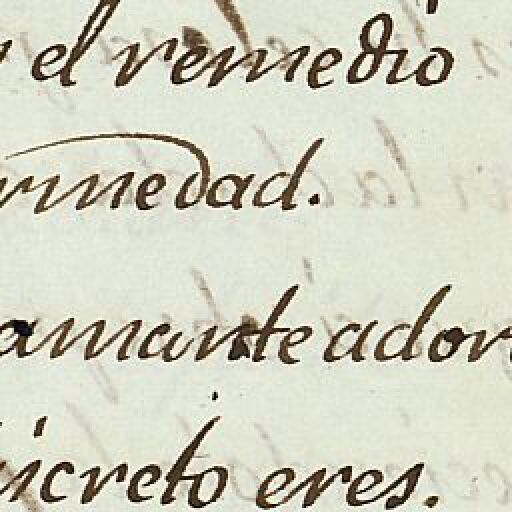 el remedio
rmedad.
amante ador
icreto eres.